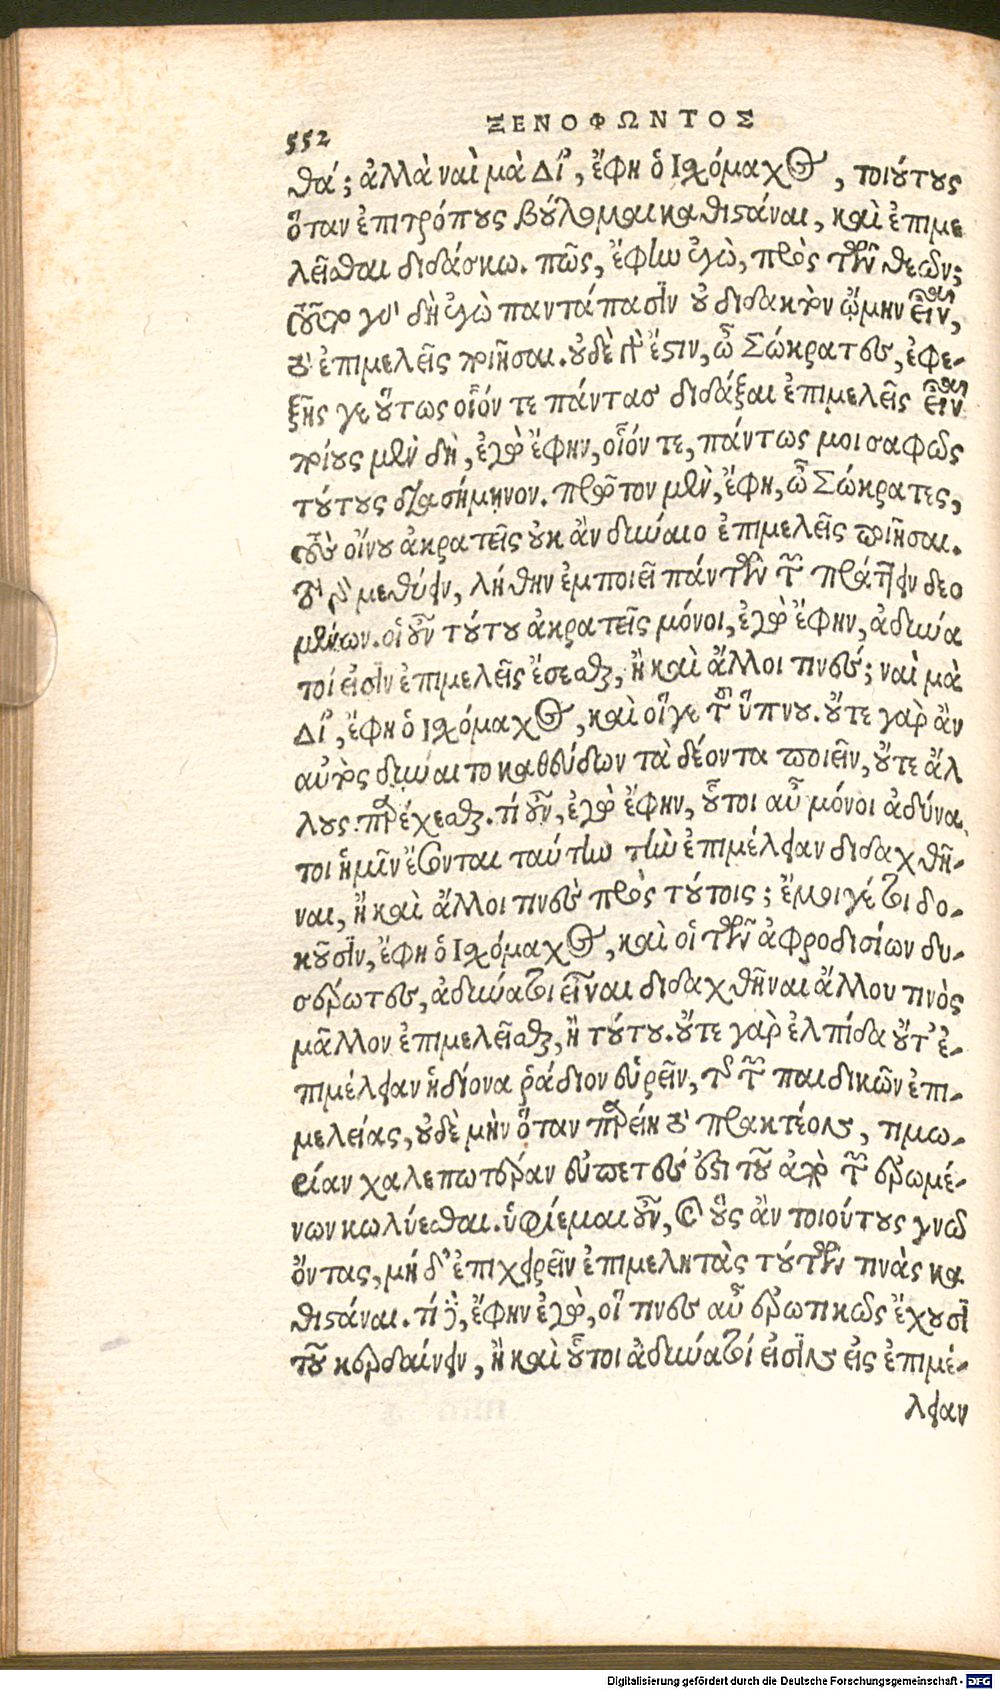 552 ΞΕΝΟΦΩΝΤΟΣ
θά; ἀλλὰ ναὶ μὰ Δί', ἔφη ὁ Ἰχόμαχος, τοιούτους
ὅταν ἐπιτρόπους βούλωμαι καθιστάναι, καὶ ἐπιμε
λεῖσθαι διδάσκω. πῶς, ἔφην ἐγὼ, πρὸς τῶν θεῶν;
τοῦτο γὰρ δὴ ἐγὼ παντάπασιν οὐ διδακτὸν ᾤμην εἶναι,
τὸ ἐπιμελεῖς ποιῆσαι. οὐδὲ γὰρ ἔστιν, ὦ Σώκρατες, ἐφε-
ξῆς γε οὕτως οἷόν τε πάντας διδάξαι ἐπιμελεῖς εἶναι
ποίους μὲν δὴ, ἐγὼ ἔφην, οἷόν τε, πάντως μοι σαφῶς
τούτους διασήμηνον. πρῶτον μὲν, ἔφη, ὦ Σώκρατες,
τοὺς οἴνου ἀκρατεῖς οὐκ ἂν δύναιο ἐπιμελεῖς ποιῆσαι.
τὸ γὰρ μεθύειν, λήθην ἐμποιεῖ πάντων τῶν πράττειν δεο
μένων. οἱ οὖν τούτου ἀκρατεῖς μόνοι, ἐγὼ ἔφην, ἀδύνα
τοί εἰσιν ἐπιμελεῖς ἔσεσθαι, ἢ καὶ ἄλλοι τινές; ναὶ μὰ
Δί', ἔφη ὁ Ἰχόμαχος, καὶ οἵγε τοῦ ὕπνου. οὔτε γὰρ ἂν
αὐτὸς δύναιτο καθεύδων τὰ δέοντα ποιεῖν, οὔτε ἄλ
λους παρέχεσθαι. τί οὖν, ἐγὼ ἔφην, οὗτοι αὖ μόνοι ἀδύνα
τοι ἡμῖν ἔσονται ταύτην τὴν ἐπιμέλειαν διδαχθῆ-
ναι, ἢ καὶ ἄλλοι τινὲς πρὸς τούτοις; ἔμοιγέ τοι δο-
κοῦσιν, ἔφη ὁ Ἰχόμαχος, καὶ οἱ τῶν ἀφροδισίων δυ-
σέρωτες, ἀδύνατοι εἶναι διδαχθῆναι ἄλλου τινὸς
μᾶλλον ἐπιμελεῖσθαι, ἢ τούτου. οὔτε γὰρ ἐλπίδα οὔτ' ἐ-
πιμέλειαν ἡδίονα ῥᾴδιον εὑρεῖν, τῆς τῶν παιδικῶν ἐπι-
μελείας, οὐδὲ μὴν ὅταν παρείη τὸ πρακτέον, τιμω-
ρίαν χαλεπωτέραν εὐπετές ἐστι τοῦ ἀπὸ τῶν ἐρωμέ-
νων κωλύεσθαι. ὑφίεμαι οὖν, καὶ οὓς ἂν τοιούτους γνῶ
ὄντας, μήδ' ἐπιχειρεῖν ἐπιμελητὰς τούτων τινὰς κα
θιστάναι. τί δὲ, ἔφην ἐγὼ, οἵ τινες αὖ ἐρωτικῶς ἔχουσι
τοῦ κερδαίνειν, ἢ καὶ οὗτοι ἀδύνατοί εἰσιν εἰς ἐπιμέ-
λειαν
Digitalisierung gefördert durch die Deutsche Forschungsgemeinschaft - DFG